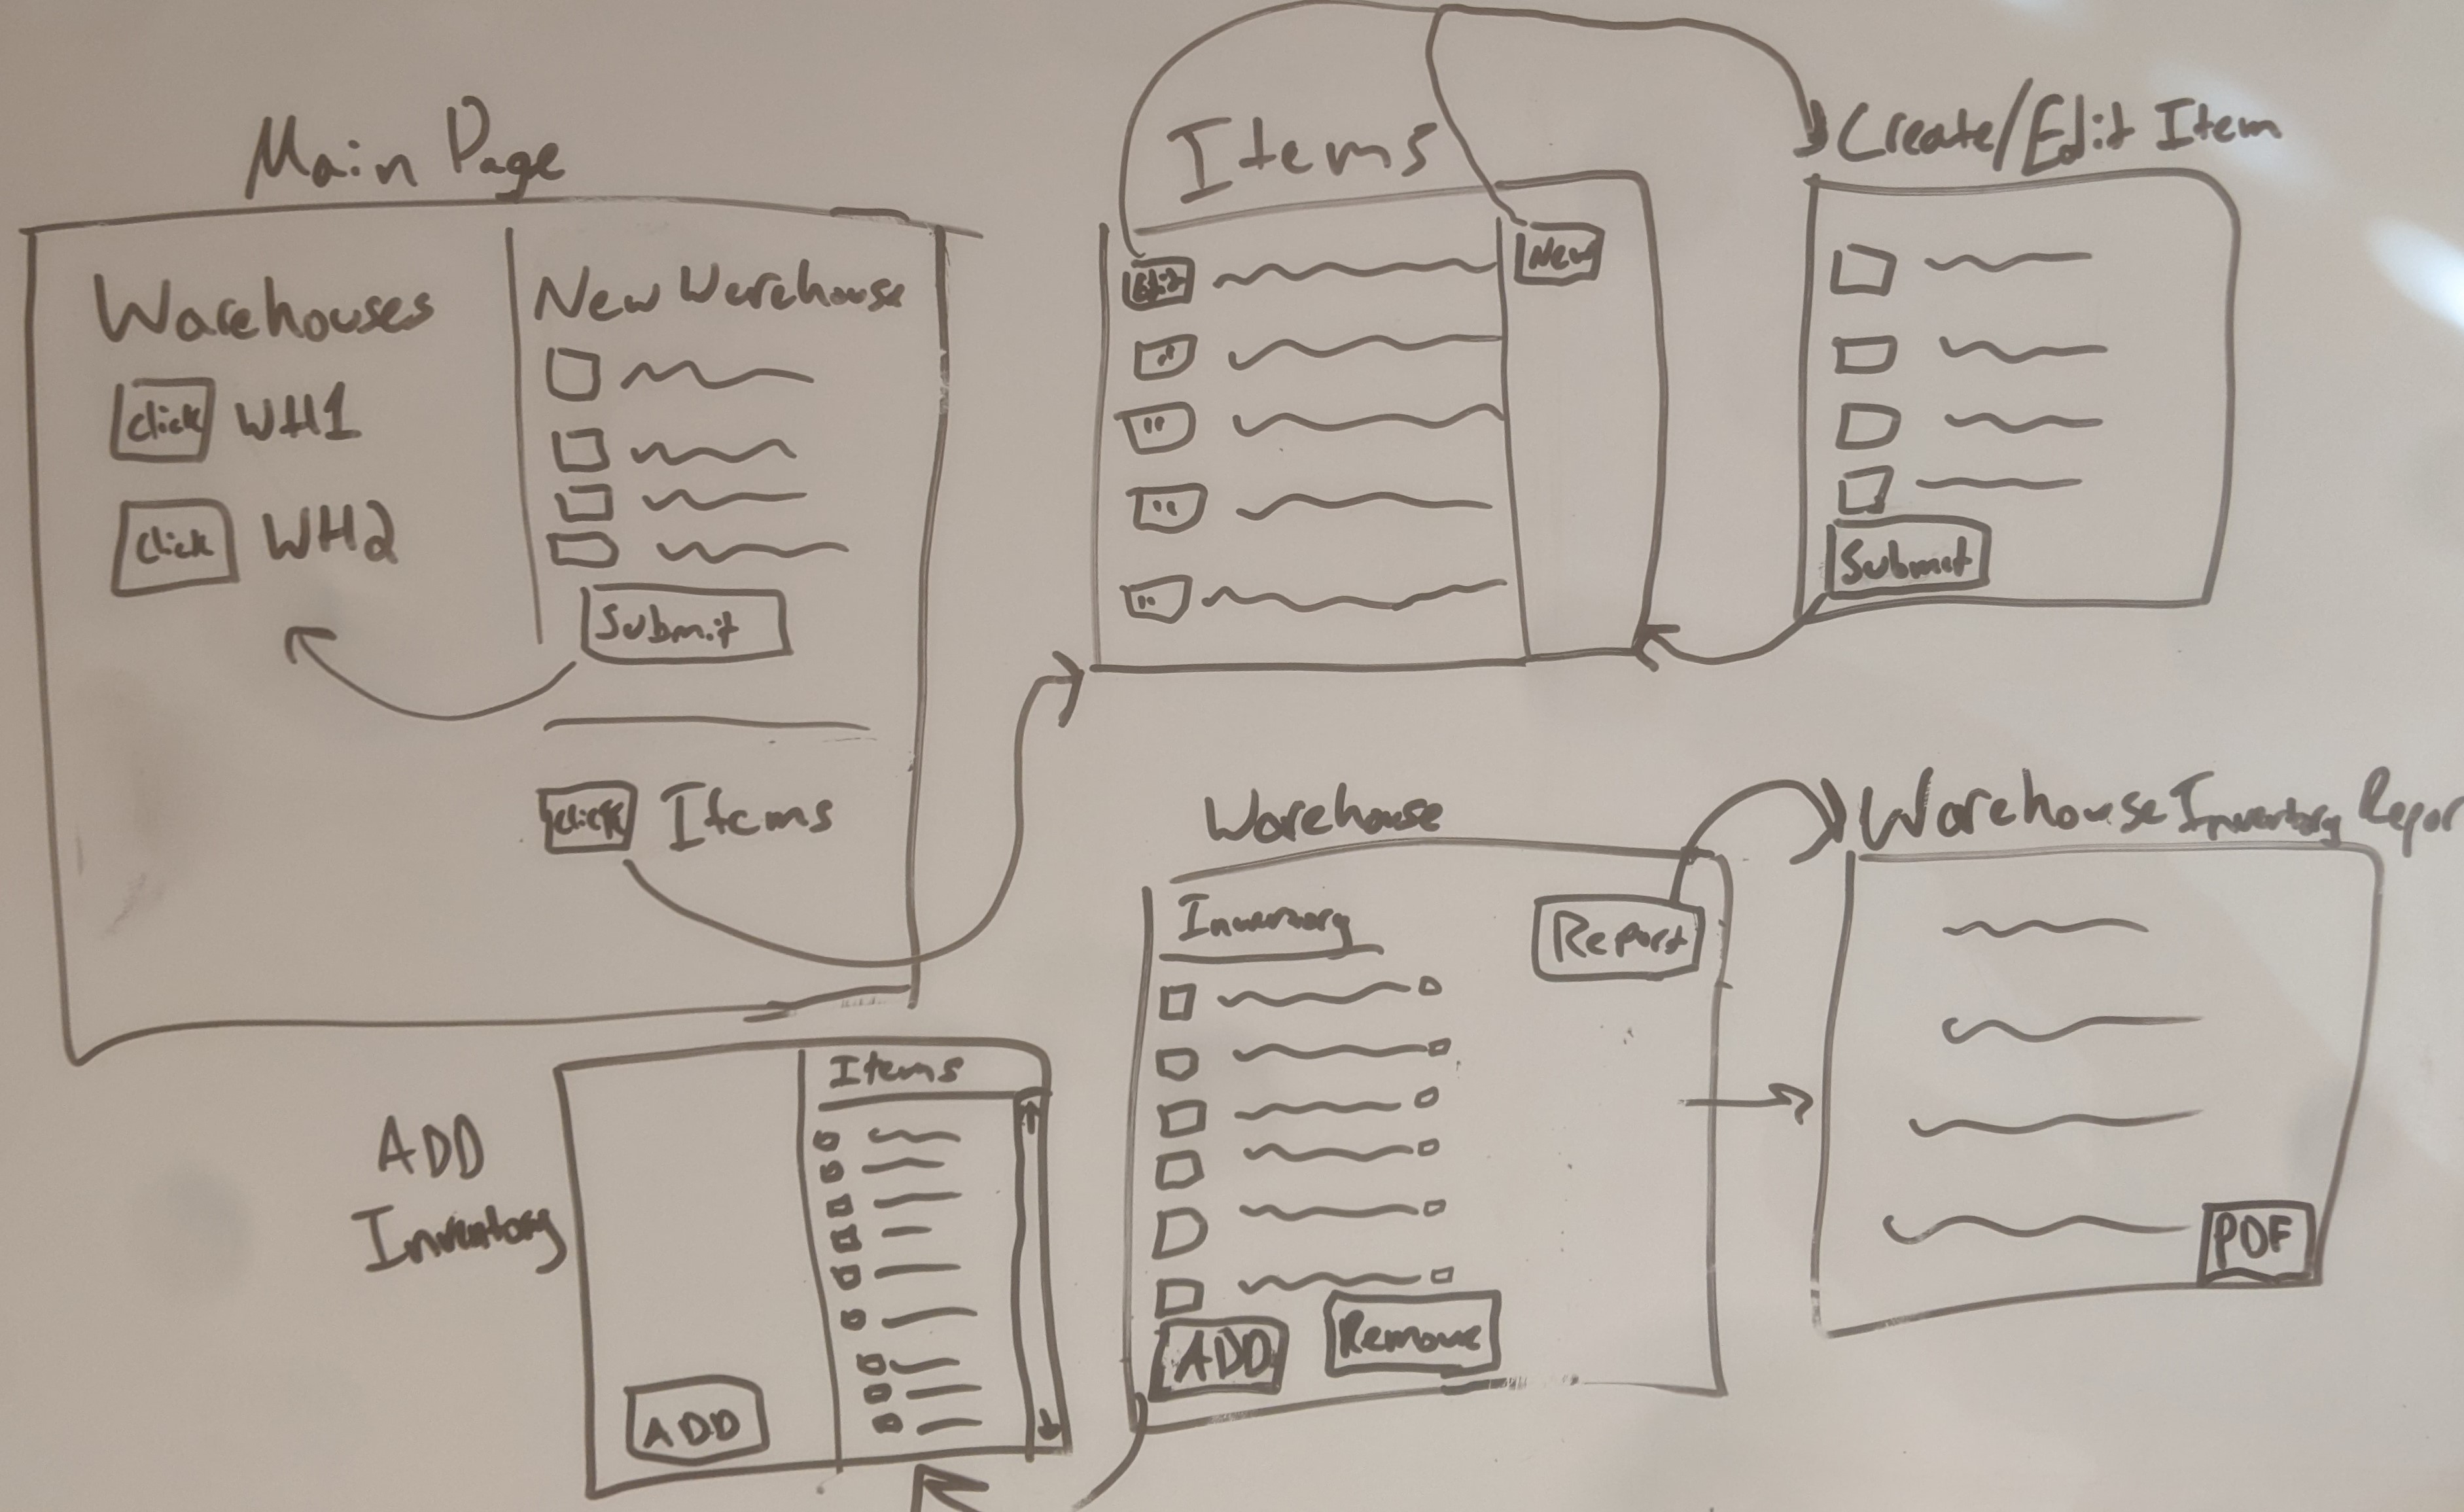 Main Page
Warehouses
click WH1
click WH2
New Warehouse
Submit
click Items
Items
Edit
New
Create/Edit Item
Submit
Warehouse
Inventory
Report
ADD
Remove
Warehouse Inventory Repor
PDF
ADD
Inventory
Items
ADD